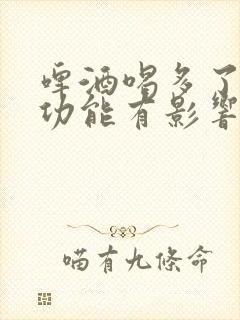 啤酒喝多了
功能有影響
喵有九條命